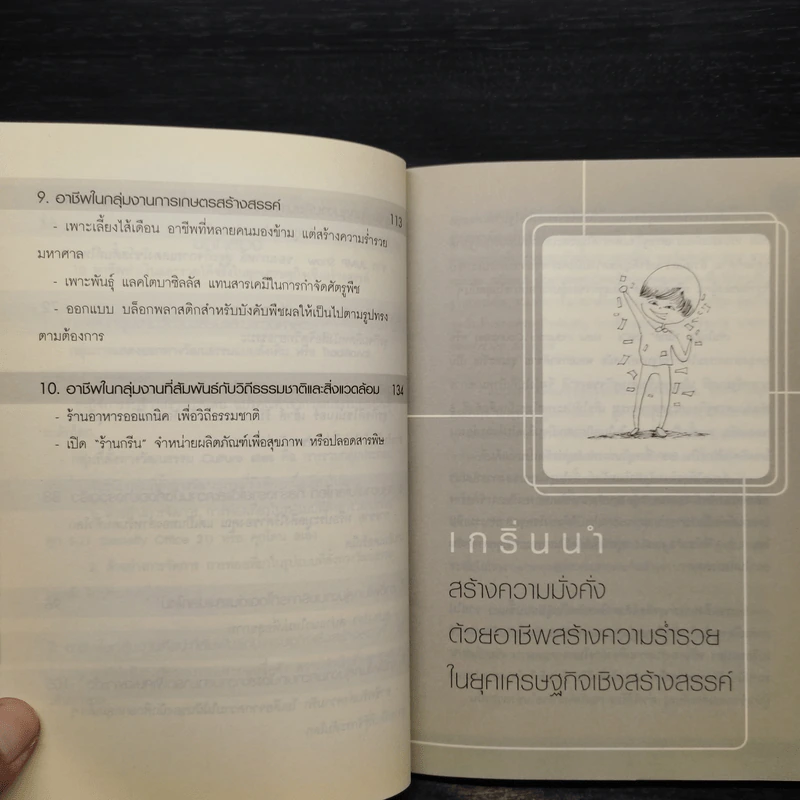 9. อาชีพในกลุ่มงานการเกษตรสร้างสรรค์ 113
- เพาะเลี้ยงไส้เดือน อาชีพที่หลายคนมองข้าม แต่สร้างความร่ำรวย
มหาศาล
- เพาะพันธุ์ แลคโตบาซิลลัส แทนสารเคมีในการกำจัดศัตรูพืช
- ออกแบบ บล็อกพลาสติกสำหรับบังคับพืชผลให้เป็นไปตามรูปทรง
ตามต้องการ
10. อาชีพในกลุ่มงานที่สัมพันธ์กับวิถีธรรมชาติและสิ่งแวดล้อม 134
- ร้านอาหารออแกนิค เพื่อวิถีธรรมชาติ
- เปิด "ร้านกรีน" จำหน่ายผลิตภัณฑ์เพื่อสุขภาพ หรือปลอดสารพิษ
เกริ่นนำ
สร้างความมั่งคั่ง
ด้วยอาชีพสร้างความร่ำรวย
ในยุคเศรษฐกิจเชิงสร้างสรรค์